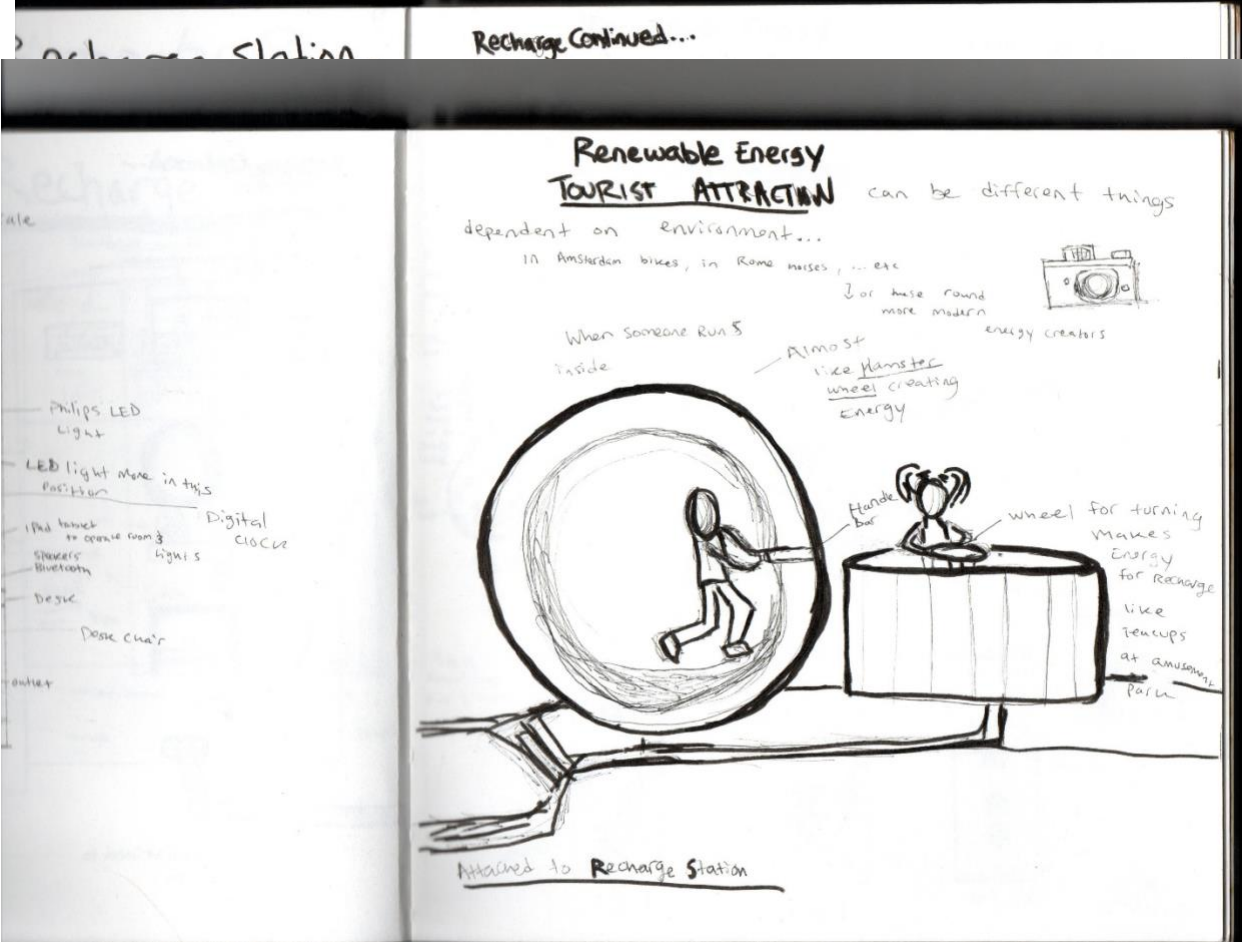 Station
Recharge Continued...
ale
Philips LED
Light
LED light more in this
Position
Digital
Clock
iPad tablet
to operate room &
lights
Speakers
Bluetooth
Desk
Desk chair
outlet
Renewable Energy
TOURIST ATTRACTION can be different things
dependent on environment...
in Amsterdam bikes, in Rome horses, ... etc
or these round
more modern
energy creators
When someone Runs
inside
Almost
like Hamster
wheel creating
Energy
Handle
bar
wheel for turning
Makes
Energy
for Recharge
like
Teacups
at amusement
Park
Attached to Recharge Station